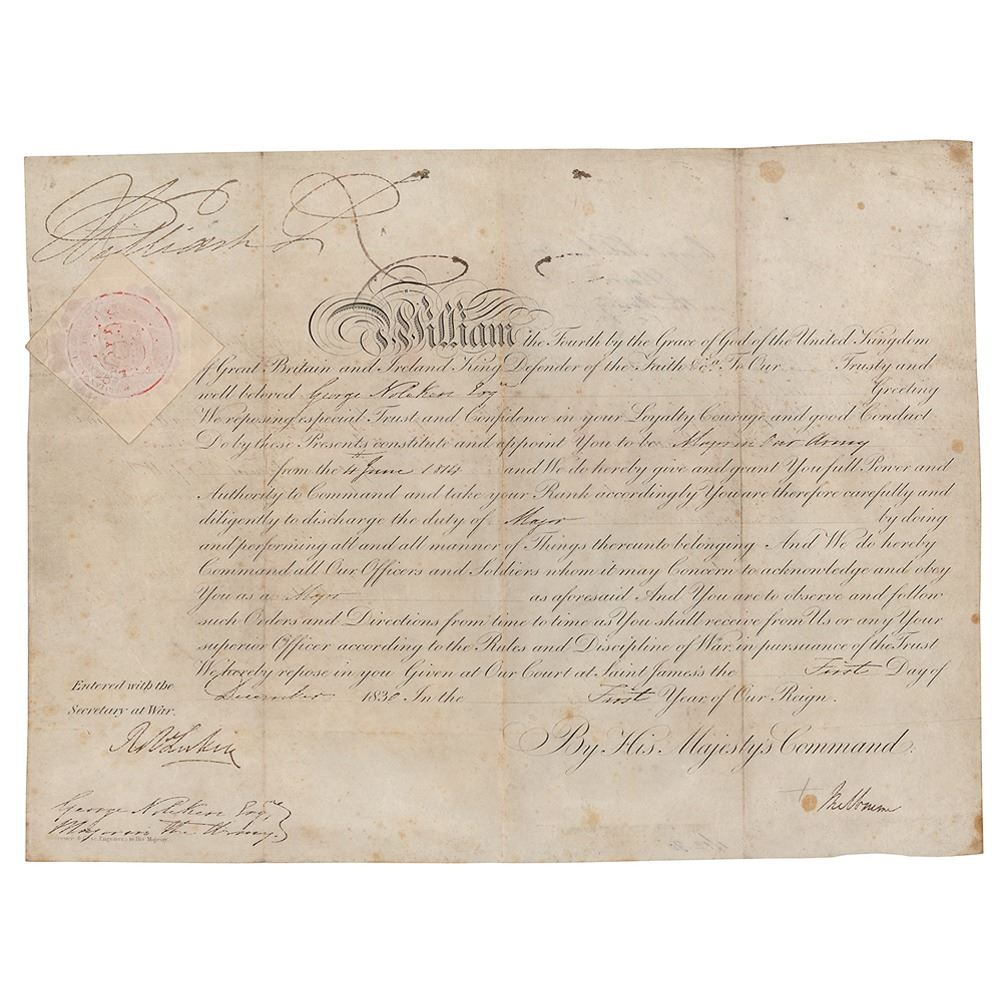 William R
William the Fourth by the Grace of God of the United Kingdom
of Great Britain and Ireland King Defender of the Faith &ca. To Our Trusty and
well beloved George Noleken Esqre Greeting
We reposing especial Trust and Confidence in your Loyalty Courage and good Conduct
Do by these Presents constitute and appoint You to be Major in Our Army
from the 4th June 1814 and We do hereby give and grant You full Power and
Authority to Command and take your Rank accordingly You are therefore carefully and
diligently to discharge the duty of Major by doing
and performing all and all manner of Things thereunto belonging And We do hereby
Command all Our Officers and Soldiers whom it may Concern to acknowledge and obey
You as a Major as aforesaid And You are to observe and follow
such Orders and Directions from time to time as You shall receive from Us or any Your
superior Officer according to the Rules and Discipline of War, in pursuance of the Trust
We hereby repose in you Given at Our Court at Saint James's the First Day of
December 1830 In the First Year of Our Reign.
By His Majesty's Command.
Melbourne
Entered with the
Secretary at War.
George Noleken Esqre,
Major in the Army.
Engravers to His Majesty